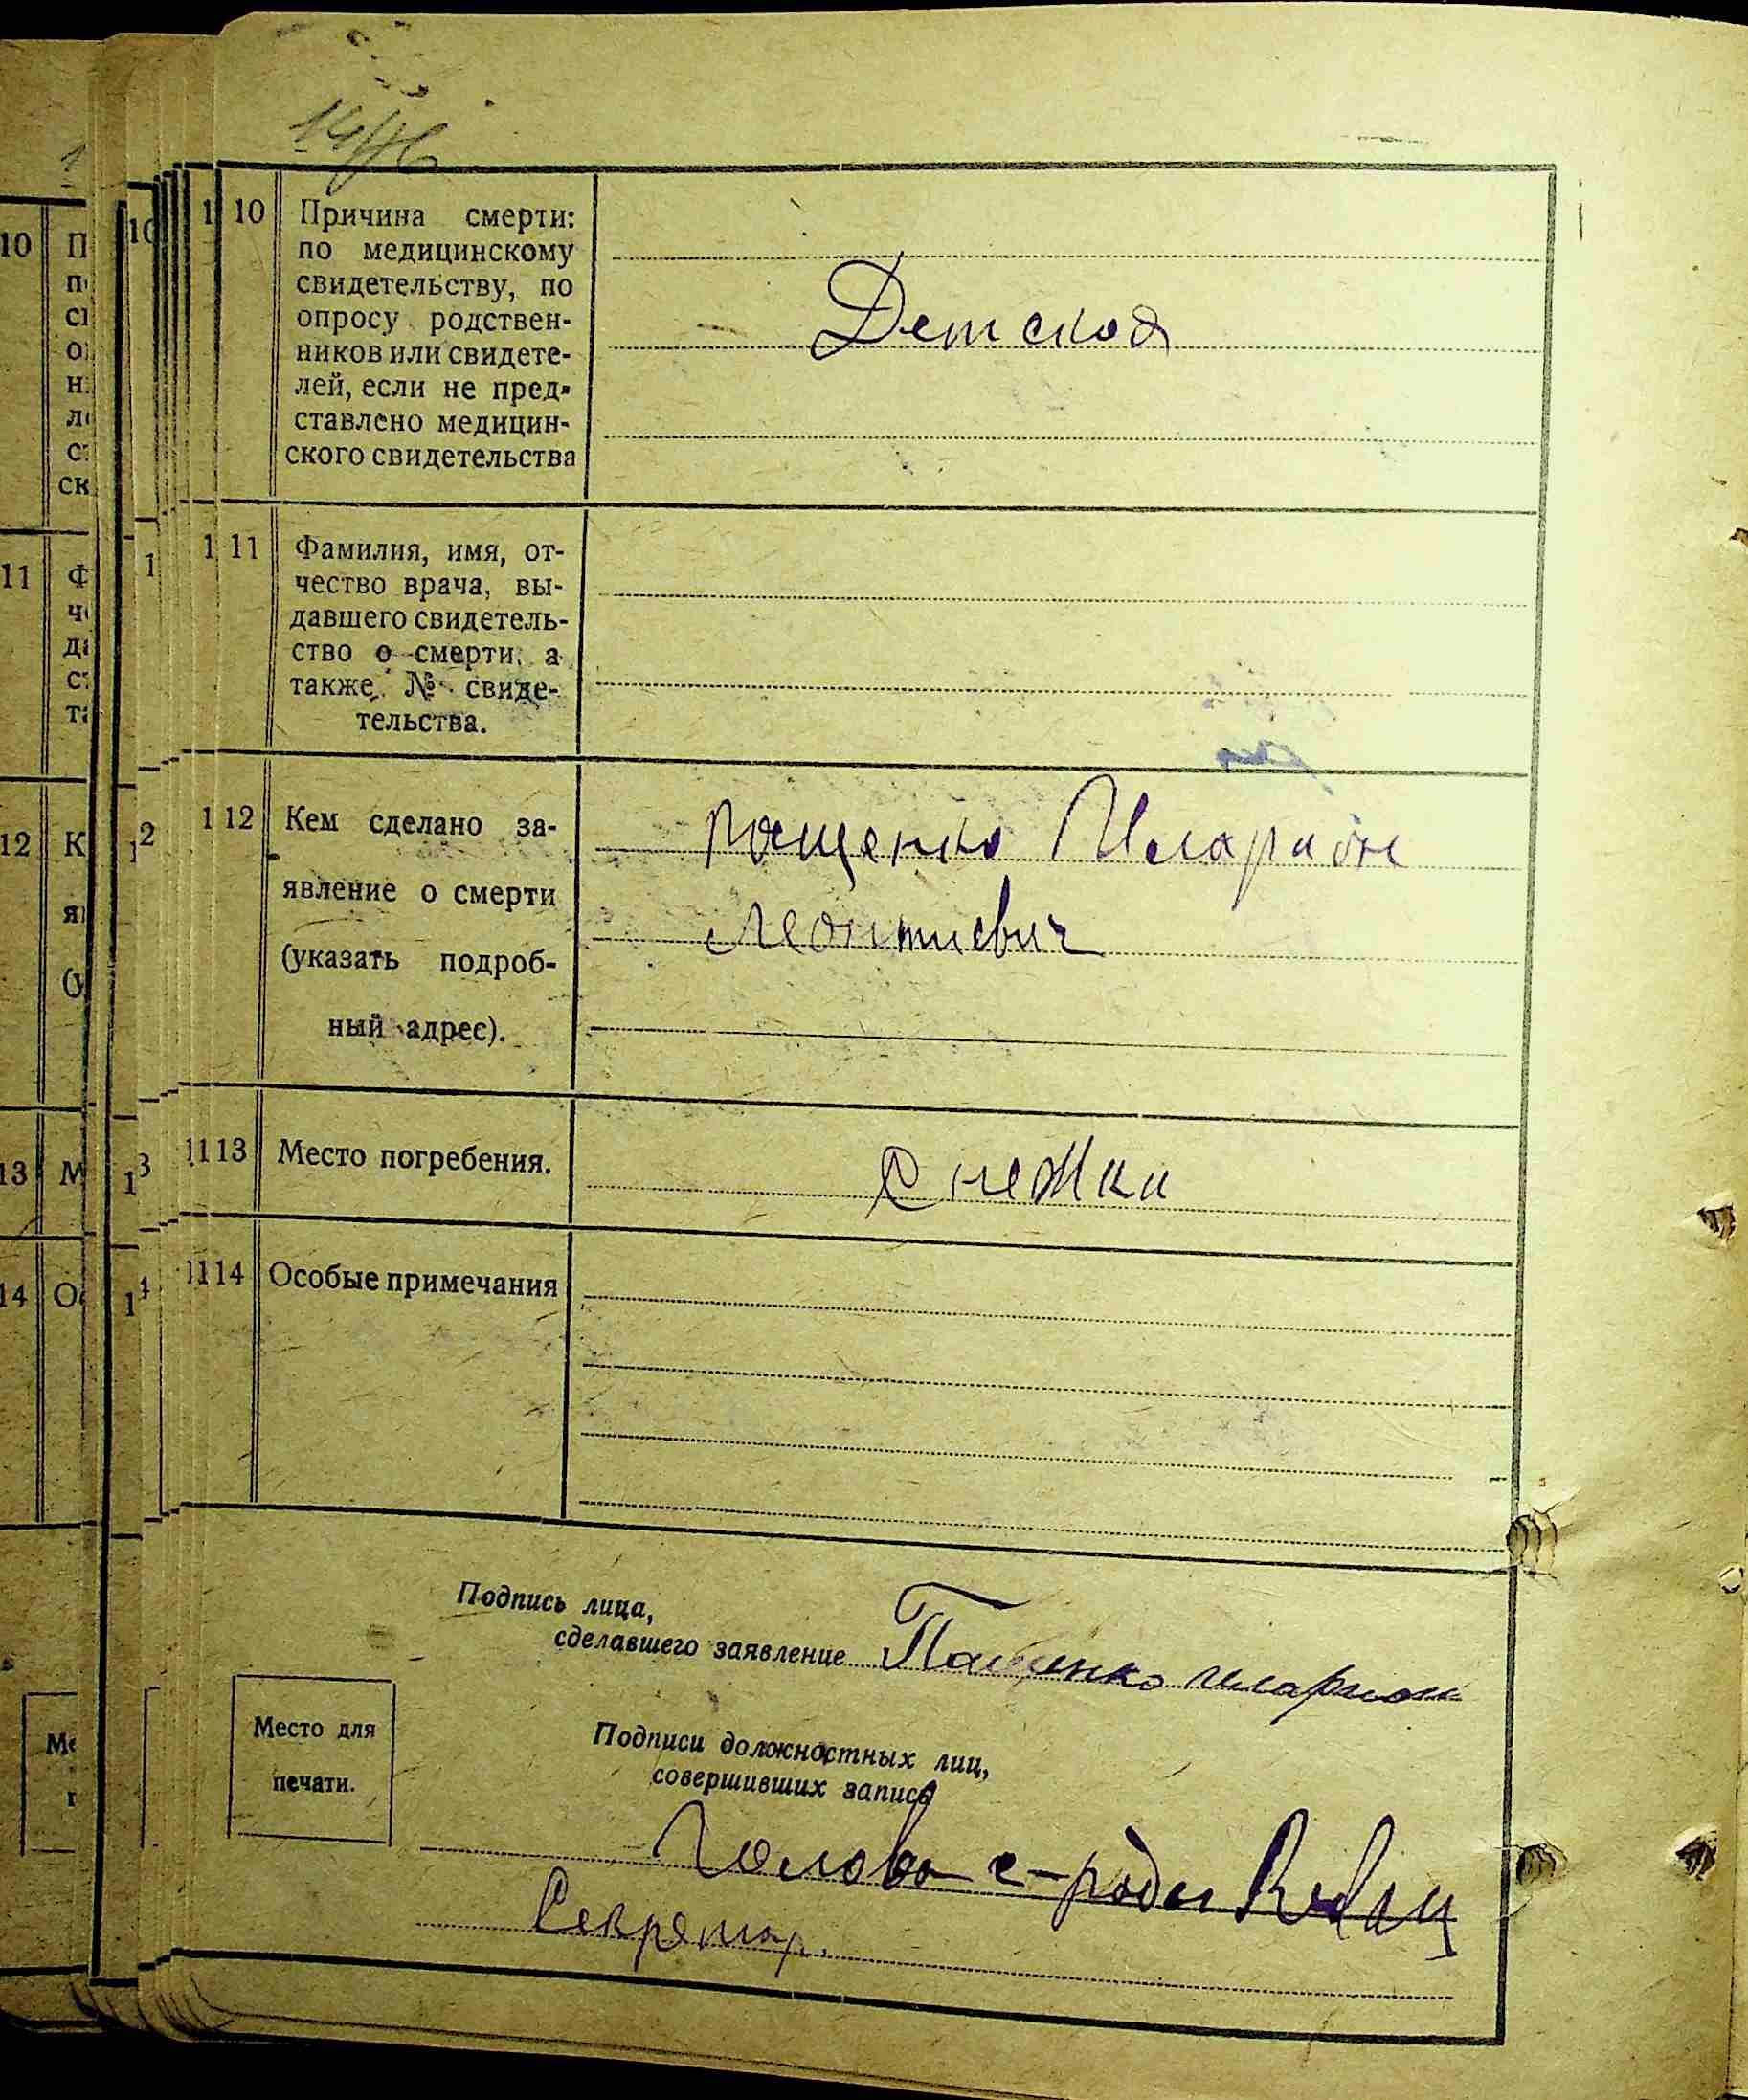 10 Причина смерти:
по медицинскому
свидетельству, по
опросу родствен-
ников или свидете-
лей, если не пред-
ставлено медицин-
ского свидетельства
Детская
11 Фамилия, имя, от-
чество врача, вы-
давшего свидетель-
ство о смерти, а
также № свиде-
тельства.
12 Кем сделано за-
явление о смерти
(указать подроб-
ный адрес).
Пащенко Иларион
Леонтиевич
13 Место погребения.
Снежки
14 Особые примечания
Подпись лица,
сделавшего заявление Пащенко иларион
Место для
печати.
Подписи должностных лиц,
совершивших запись
Голова с-ради
Секретар.